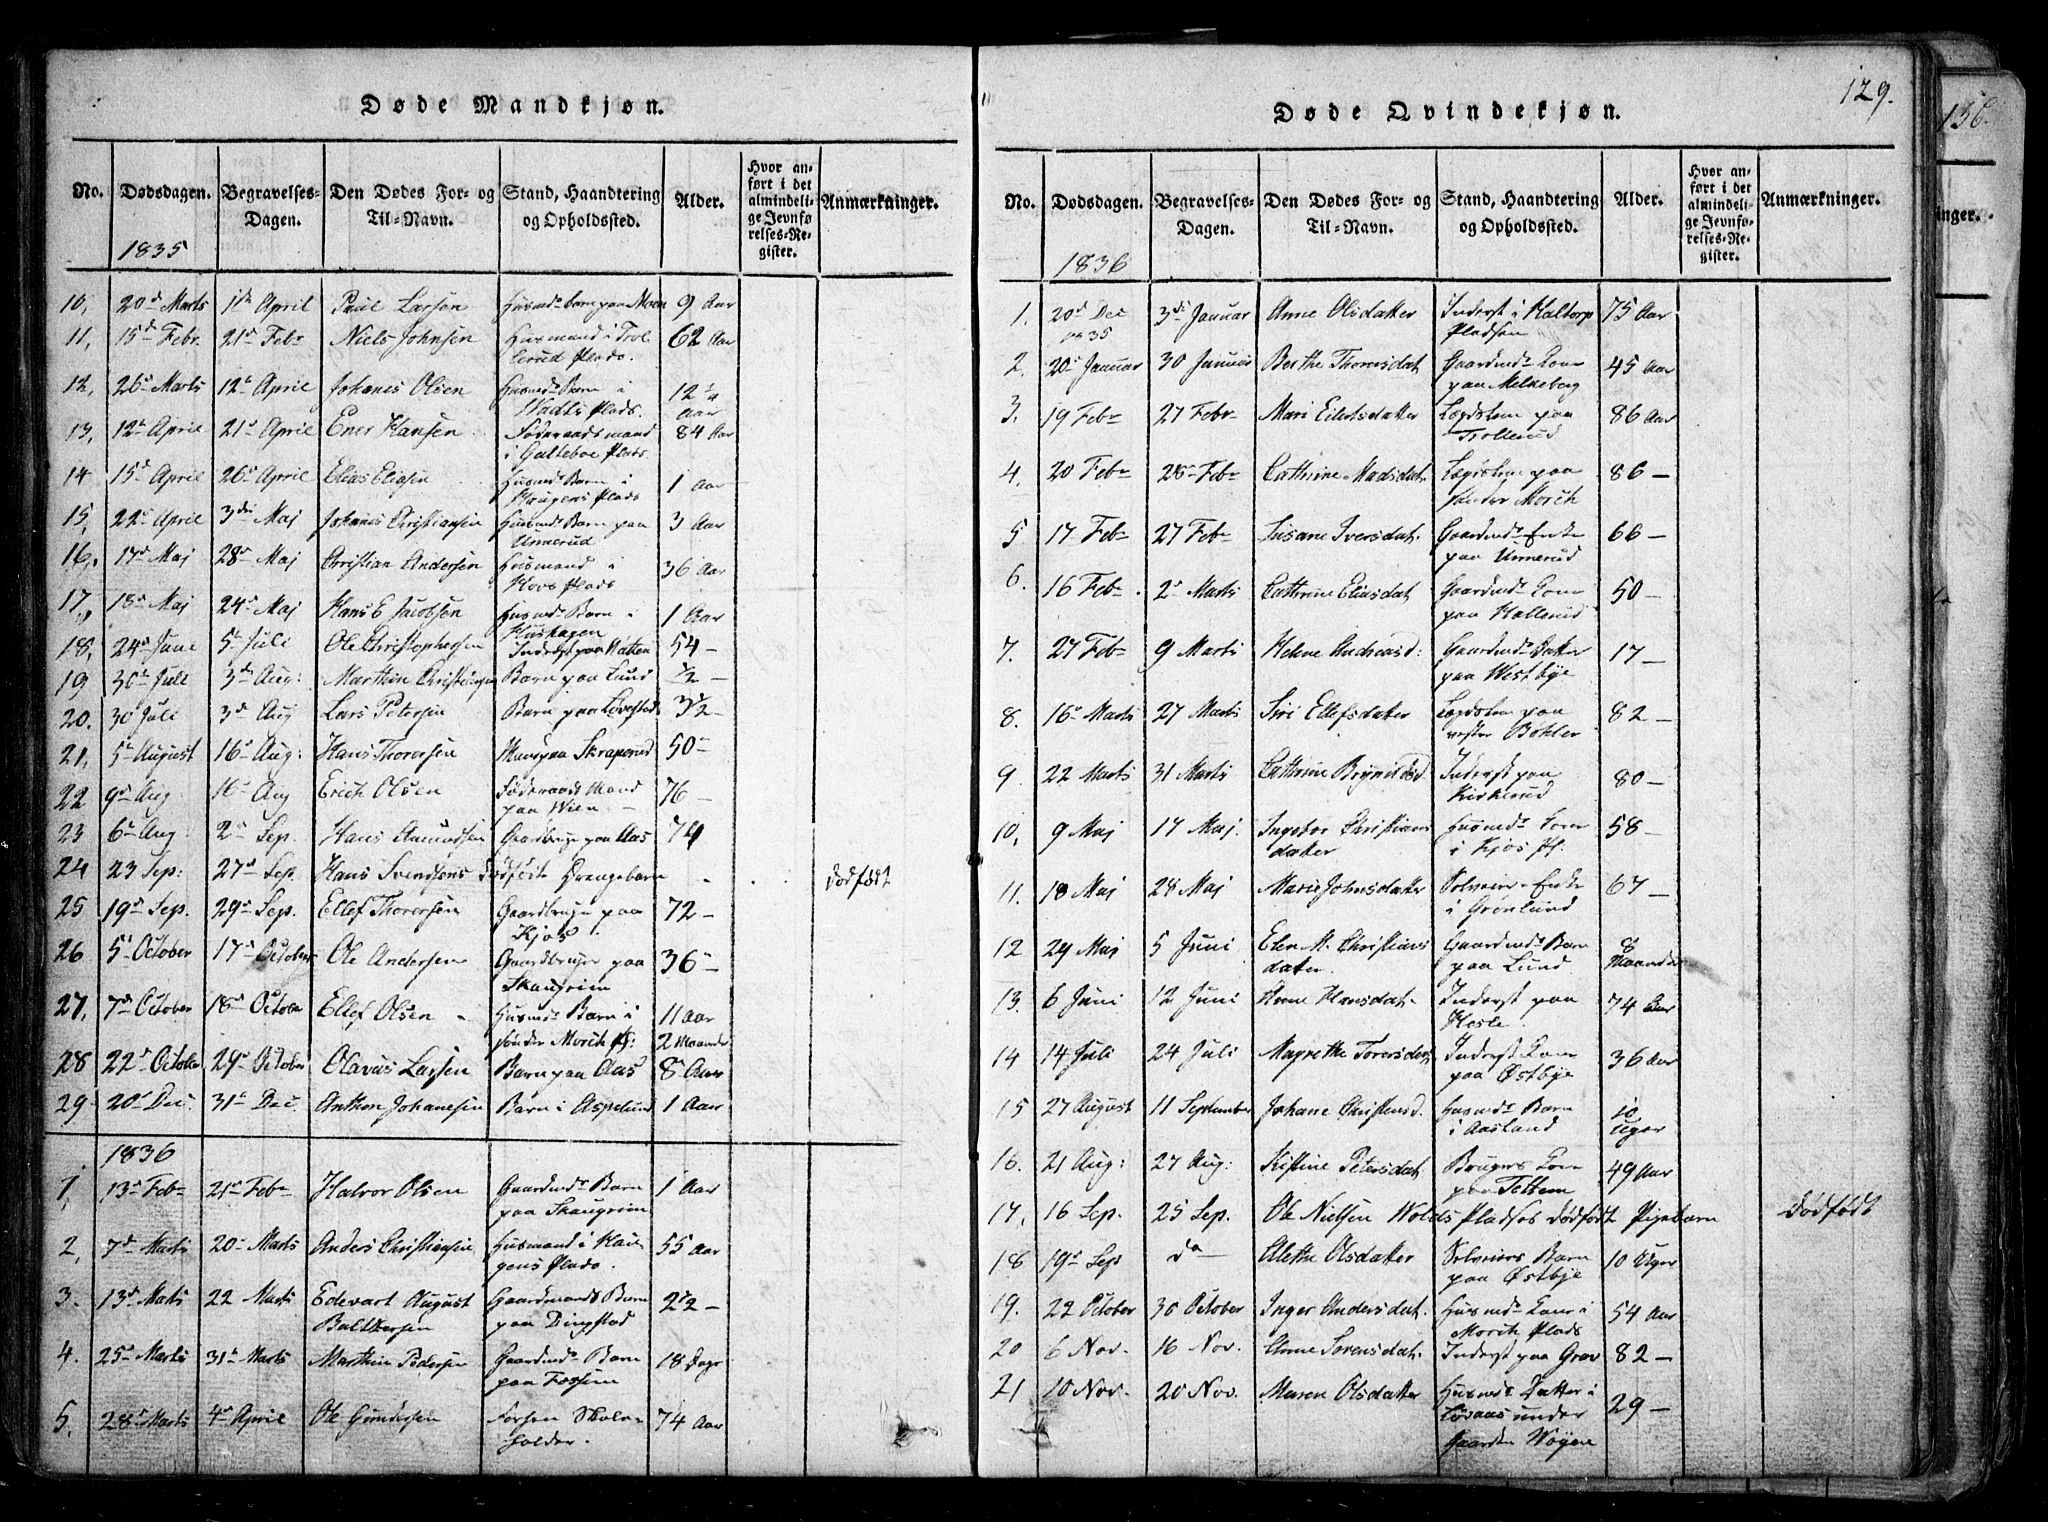 129.
136.
Døde Mandkjøn.
No. Dødsdagen. Begravelses-Dagen. Den Dødes For- og Til-Navn. Stand, Haandtering og Opholdssted. Alder. Hvor anført i det almindelige Jevnførelses-Register. Anmærkninger.
1835
10, 20d Marts 1ste April Paul Larsen Husmds barn paa Moen 9 Aar
11, 15d Febr. 21d Feb Niels Johnsen Husmand i Trol
lerud Plads. 62 Aar
12, 26d Marts 12d April Johanes Olsen Husmds Barn i
Plads. 12 1/4
Aar
13, 12d April 21d April Ener Hansen Føderaadsmand
i Galteboe Plads. 84 Aar
14 15d April 26d April Elias Eliasen Husmds Barn i
Haugens Plads 1 Aar
15, 22d April 3die Maj Johanes Christiansen Husmds Barn paa
Unnerud 3 Aar
16, 17d Maj 28d Maj Christian Andersen Husmand i
Hovs Plads 36 Aar
17, 18d Maj 24d Maj Hans E. Jacobsen Husmds Barn i
Hushagen 1 Aar
18, 24d Juni 5d Juli Ole Christophersen Inderst paa 54 —
19 30d Juli 3d Aug: Marthin Christiansen Barn paa Lund 1/2 —
20. 30 Juli 3d Aug Lars Petersen Barn paa Løvestad 3 1/2 —
21, 5d August 16d Aug: Hans Thoresen paa Skraperud 50 —
22 9d Aug 16d Aug Erich Olsen Føderaads Mand
paa Wien 76 —
23 6d Aug: 2d Sep. Hans Amundsen Gaardbruger paa Aas 74
24 23 Sep: 27d Sep. Hans Svendsens dødfødte Drengebarn dødfødt
25 19d Sep. 29d Sep. Ellef Thoresen Gaardbruger paa
Kjos. 72 —
26 5d October 17d October Ole Andersen Gaardbruger paa
Skaugrim 36 —
27, 7d October 18d October Ellef Olsen Husmds Barn i
sønder Morch Pl: 11 Aar
2 Maaneder
28 22d October 29d October Olavus Larsen Barn paa Aas 8 Aar
29 20d Dec. 31d Dec. Anthon Johanesen Barn i Aspelund 1 Aar
1836
1, 13d Feb 21d Feb Halvor Olsen Gaardmds Barn
paa Skaugrim 1 Aar
2, 7d Marts 20 Marts Anders Christiansen Husmand i Hau
gens Plads. 55 Aar
3. 13d Marts 22 Marts Edevart August
Baltzersen Gaardmands Barn
paa Dingstad 2 1/2 —
4. 25d Marts 31d Marts Marthin Pedersen Gaardmds Barn
paa Fossum 18 Dage
5. 28d Marts 4d April Ole Gundersen Skole
holder. 74 Aar
Døde Qvindekjøn.
No. Dødsdagen. Begravelses-Dagen. Den Dødes For- og Til-Navn. Stand, Haandtering og Opholdssted. Alder. Hvor anført i det almindelige Jevnførelses-Register. Anmærkninger.
1836
1. 20d Dec
1835 3die Januar Anne Olsdatter Inderst i Haltorp
Pladsen 75 Aar
2. 20d Januar 30 Januar Berthe Thoresdat. Gaardmds Kone
paa Melkeberg 45 Aar
3. 19 Feb 27 Febr Mari Eilertsdatter Lægdslem paa
Trollerud 86 Aar
4, 20 Feb 28 Feb Cathrine Madsdat. Lægdslem paa
sønder Morch 86 —
5 17 Feb 27 Feb Susane Iversdat. Gaardmds Enke
paa Unnerud 66 —
6. 16 Feb. 2d Marts Cathrine Eliasdat Gaardmds Kone
paa Hallerud 50 —
7. 27 Feb 9 Marts Helene Andreasd: Gaardmds Datter
paa Westbye 17 —
8. 16d Marts 27 Marts Siri Ellefsdatter Lægdslem paa
vester Bøhler 82 —
9. 22 Marts 31 Marts Cathrine Brynildsd. Inderst paa
Kirkerud 80 —
10, 9 Maj 17 Maj. Ingebor Christians
datter Husmds Kone
i Kjos Pl. 58 —
11. 18 Maj 28 Maj Marie Johnsdatter Selveier-Enke
i Grønlund 67 —
12 29 Maj 5 Juni Elen M. Christians
datter. Gaardmds Barn
paa Lund 8
Maaneder
13. 6 Juni 12 Juni Anne Hansdat. Inderst paa
Hosle. 74 Aar
14 14 Juli 24 Juli Magrethe Toresdat. Inderst Kone
paa Østbye 36 Aar
15 27 August 11 September Johane Christensd. Husmds Barn
i Aasland 10
Uger
16. 21 Aug: 27 Aug: Kistine Petersdat. Brugers Kone
paa Tettem 49 Aar
17, 16 Sep. 25 Sep. Ole Nielsen Wolds Pladses dødfødt Pigebarn dødfødt
18 19d Sep do Alethe Olsdatter Selveiers Barn
paa Østbye 10 Uger
19. 22 October 30 October Inger Andersdat. Husmds Kone i
Morch Plads 54 Aar
20 6 Nov. 16 Nov. Anne Sørensdat. Inderst paa Grav 82 —
21 10 Nov. 20 Nov. Maren Olsdatter Husmds Datter i
Løvaas under
Gaarden Wøyen 29 —